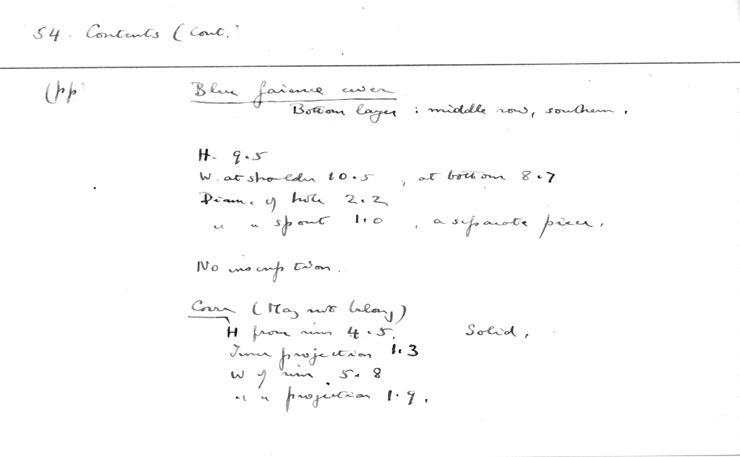 54. Contents (Cont.
(pp
Blue faience ewer
Bottom layer : middle row, southern.
H. 9.5
W. at shoulder 10.5 , at bottom 8.7
Diam. of hole 2.2
" " spout 1.0 , a separate piece.
No inscription.
Cover (May not belong)
H from rim 4.5. Solid.
Inner projection 1.3
W of rim . 5.8
" " projection 1.9.